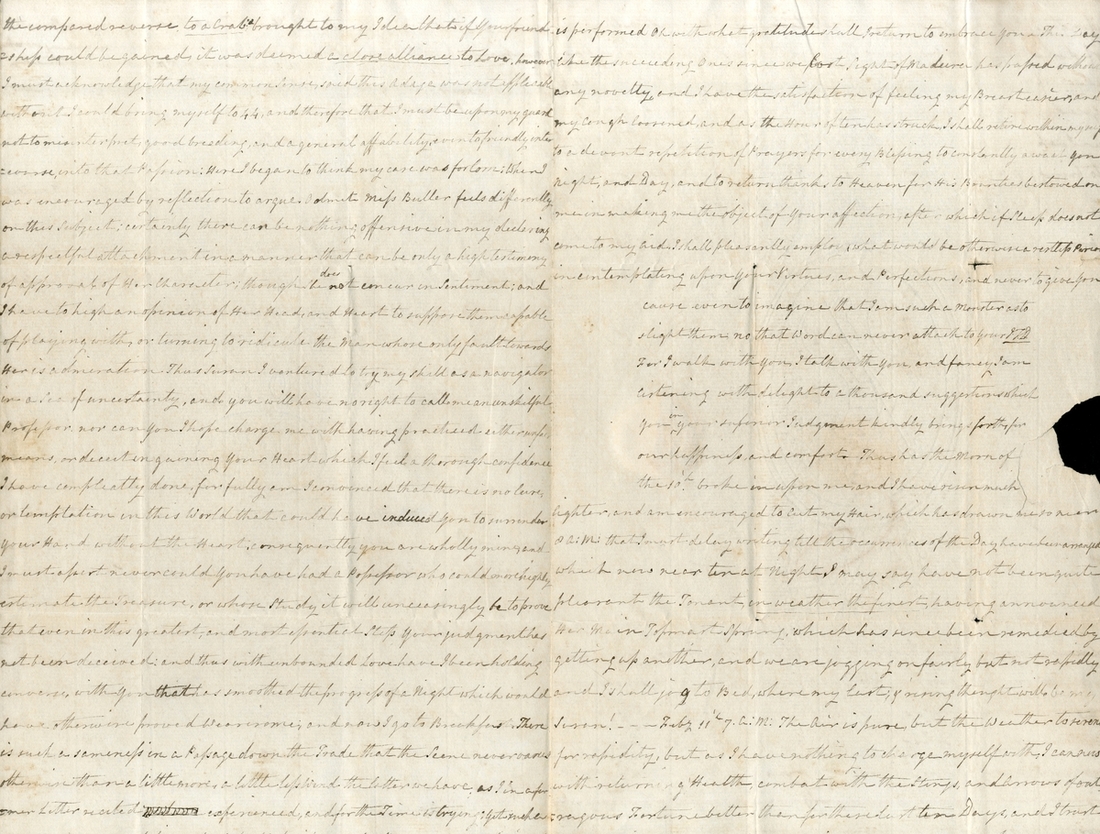 the compared reverse to a Crab brought to my Idea that if Your friend
=ship could be gained, it was deemed a close alliance to Love, however
I must acknowledge that my common sense, said this adage was not applicable
without I could bring myself to 44, and therefore that I must be upon my guard
not to misinterpret, good breeding, and a general affability, or into friendly inter
course, into that Passion: Here I began to think my case was forlorn: When I
was encouraged by reflection to argue. I admit Miss Butler feels differently
on this Subject; certainly there can be nothing offensive in my declaring
a respectful attachment in a manner that can be only a high testimony
of approval of Her Character; though it does not concur in Sentiment; and
I have to high an opinion of Her Head, and Heart to suppose them capable
of playing with, or turning to ridicule the Man whose only fault towards
Her is admiration. Thus Susan I ventured to try my skill as a navigator
in a Sea of uncertainty, and you will have no right to call me an unskilful
Professor, nor can you I hope charge me with having practiced either
means, or deceit in gaining Your Heart which I feel a thorough confidence
I have compleatly done, for fully am I convinced that there is no lure,
or temptation in this World that could have induced You to surrender
Your Hand without the Heart, consequently you are wholly mine, and
I must assert never could You have had a Possessor who could more highly
estimate the Treasure, or whose Study it will unceasingly be to prove
that even in this greatest, and most essential Step Your judgment has
not been deceived; and thus with unbounded Love have I been holding
converse with You that has smoothed the progress of a Night which would
have otherwise proved Wearisome; and now I go to Breakfast. There
is such a sameness in a Passage down the Trade that the Scene never varies
otherwise than a little more, or a little less Wind the latter we have, as I in a for
mer Letter recited experienced, and for the Time is trying; yet when
is performed Oh with what gratitude shall I return to embrace you. This Day
like the succeeding Ones since we lost Sight of Madeira has passed without
any novelty, and I have the satisfaction of feeling my Breast easier, and
my Cough loosened, and as the Hour of ten has struck, I shall retire within my
to a devout repetition of Prayers for every Blessing to constantly await You
Night, and Day, and to return thanks to Heaven for His Bounties bestowed on
me in making me the object of Your affection, after which if Sleep does not
come to my aid, I shall pleasantly employ, what would be otherwise a restless
in contemplating upon Your Virtues, and Perfections, and never to give You
cause even to imagine that I am such a Monster as to
slight them no that Word can never attach to your
For I walk with You, I talk with You and fancy I am
listening with delight to a thousand suggestions which
you in your superior Judgment kindly bring forth, for
our happiness, and comfort. Thus has the Morn of
the 10th. broke in upon me, and I have risen much
lighter, and am encouraged to cut my Hair, which has drawn me so near
8 A:M: that I must delay writing till the occurrences of the Day have been arranged
which now near ten at Night I may say have not been quite
pleasant the Tenant, in weather the finest, having announced
Her Main Topmast Sprung, which has since been remedied by
getting up another, and we are jogging on fairly but not rapidly
and I shall jog to Bed, where my last, & rising thought will be my
Susan! - - - Feby. 11th 7. A:M: The Air is pure but the Weather
for rapidity, but as I have nothing to charge myself with, I can now
with returning Health, combat with the Stings, and arrows of out
rageous Fortune better than for these last ten Days, and I trust